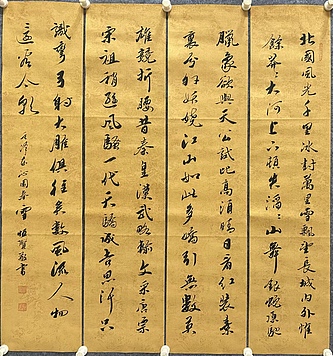 北國風光千里冰封萬里雪飄望長城内外惟
餘莽〻大河上下頓失滔〻山舞銀蛇原馳
臘象欲與天公試比高須晴日看紅裝素
裹分外妖嬈江山如此多嬌引無數英
雄競折腰昔秦皇漢武略輸文采唐宗
宋祖稍遜風騷一代天驕成吉思汗只
識彎弓射大雕俱往矣數風流人物
還看今朝
毛澤東沁園春雪